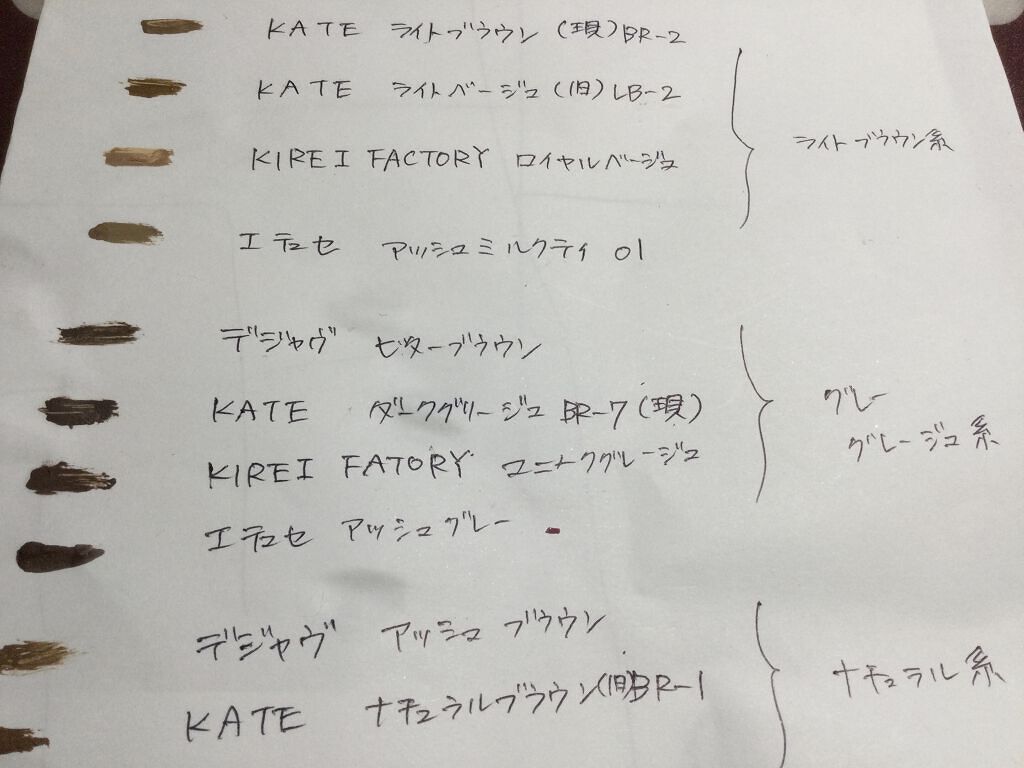 KATE ライトブラウン (現) BR-2
KATE ライトベージュ (旧) LB-2
KIREI FACTORY ロイヤルベージュ
エテュセ アッシュミルクティ 01
ライトブラウン系
デジャヴ ビターブラウン
KATE ダークグリージュ BR-7 (現)
KIREI FATORY ユニークグレージュ
エテュセ アッシュグレー
グレー
グレージュ系
デジャヴ アッシュブラウン
KATE ナチュラルブラウン(旧)BR-1
ナチュラル系